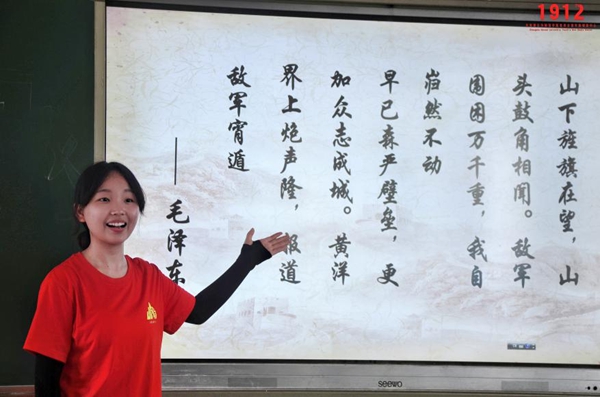 1912
山下旌旗在望，山
头鼓角相闻。敌军
围困万千重，我自
岿然不动
早已森严壁垒，更
加众志成城。黄洋
界上炮声隆，报道
敌军宵遁
——毛泽东
seewo